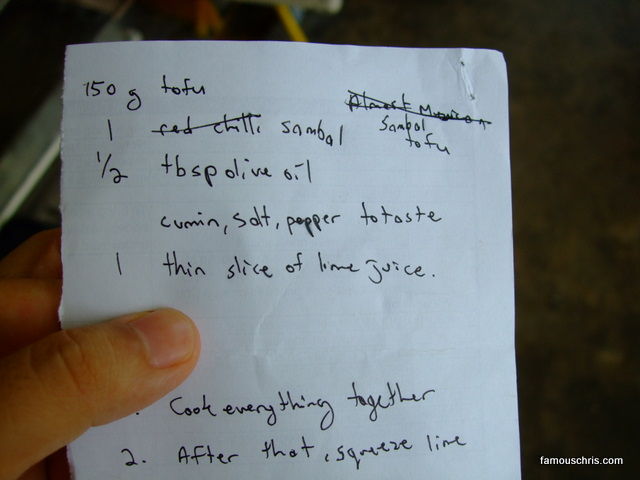 150 g tofu
Almost Mexican
1 red chilli sambal
Sambal
tofu
1/2 tbsp olive oil
cumin, salt, pepper to taste
1 thin slice of lime juice.
. Cook everything together
2. After that, squeeze lime
famouschris.com